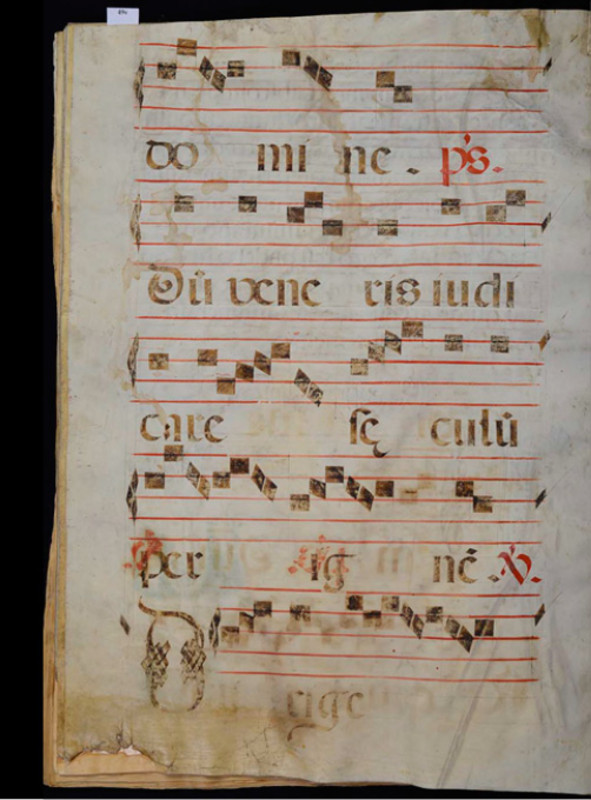 do mi ne . ps.
Dũ vene ris iudi
care sę culũ
per ig nẽ . V.
Dirige